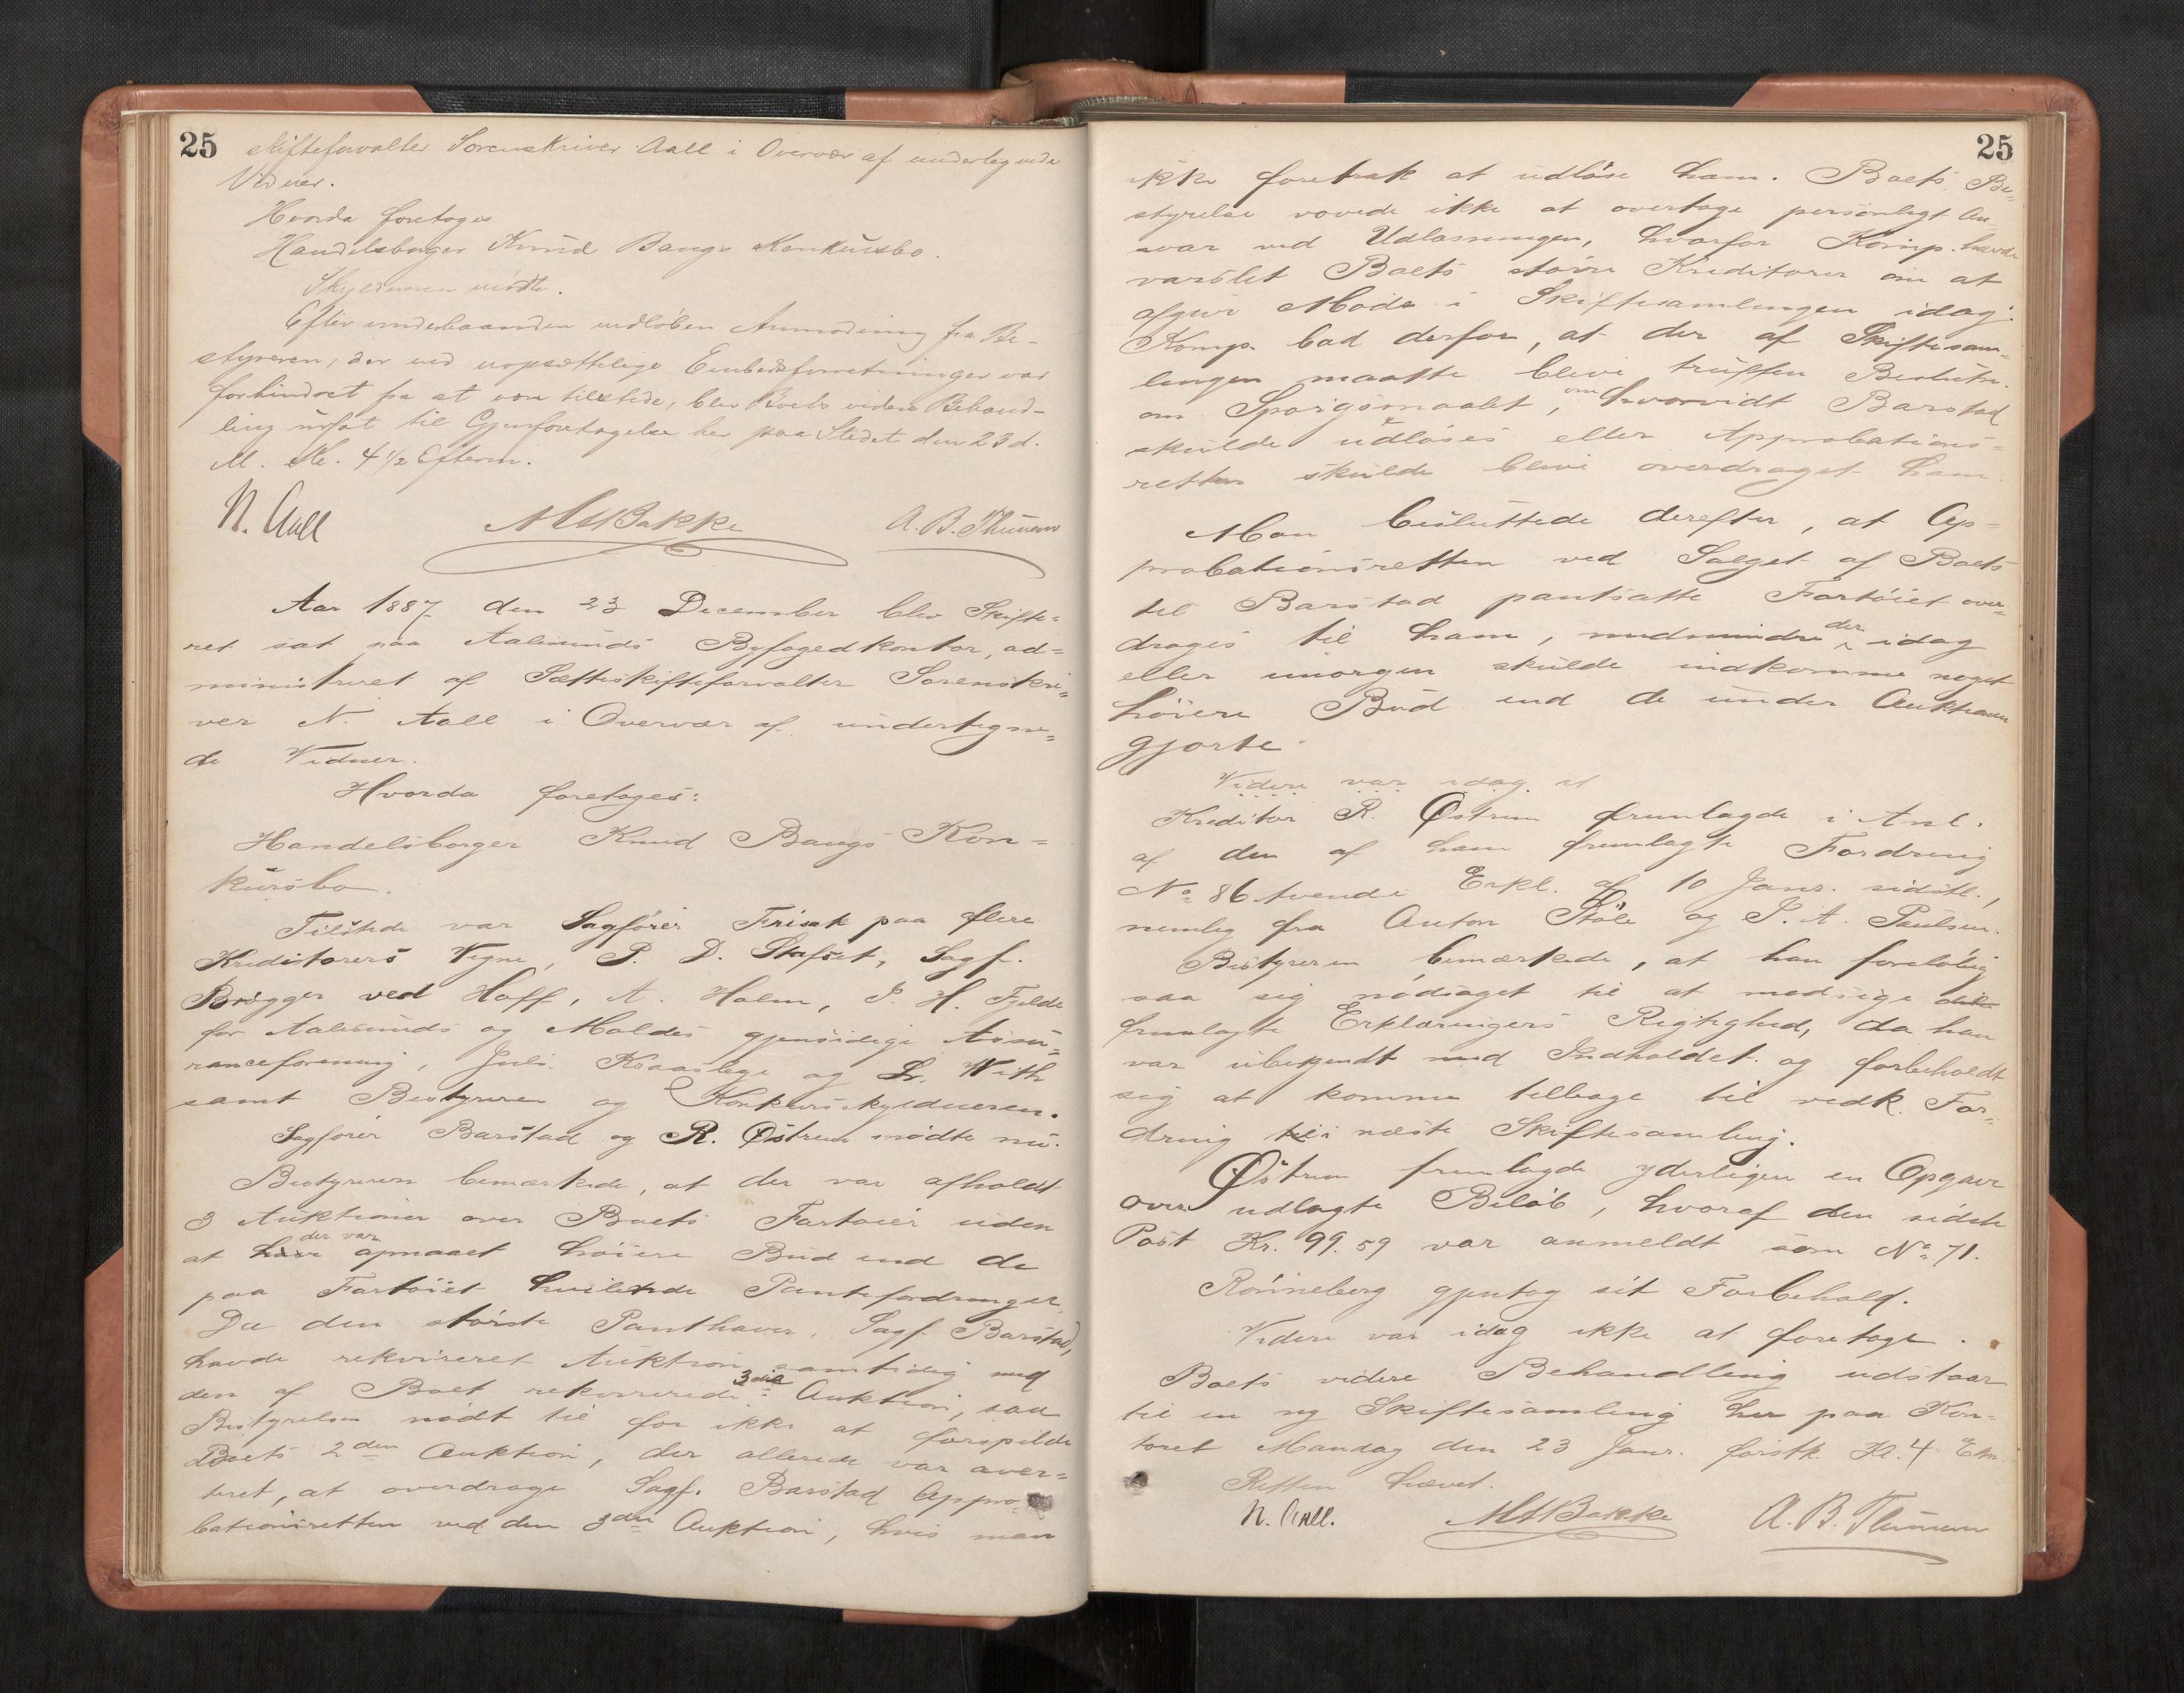 25
Skifteforvalter Sorenskriver Aall i Overvær af undertegnede
Vidner.
Hvorda foretoges
Handelsborger Knud Bangs Konkursbo.
Skyldneren mødte.
Efter underhaanden indløben Anmodning fra Be-
styreren, der ved uopsættelige Embedsforretninger var
forhindret fra at være tilstede, blev Boets videre Behand-
ling udsat til Gjenforetagelse her paa Stedet den 23 d.
M. Kl. 4 1/2 Efterm.
N. Aall MMBakke A. B. Thunem
Aar 1887 den 23 December blev Skifte-
ret sat paa Aalesunds Byfogedkontor, ad-
ministreret af Sætteskifteforvalter Sorenskri-
ver N. Aall i Overvær af undertegne-
de Vidner.
Hvorda foretoges:
Handelsborger Knud Bangs Kon-
kursbo.
Tilstede var Sagfører Frisak paa flere
Kreditorers Vegne, P. D. Stafset, Sagf.
Brøgger ved Hoff, A. Holm, P. H. Fjelde
for Aalesunds og Moldes gjensidige Assu-
ranceforening, Juls. Kaarbøe og Lr. With
samt Bestyreren og Konkursskyldneren.
Sagfører Barstad og R. Østrem mødte nu.
Bestyreren bemærkede, at der var afholdt
3 Auktioner over Boets Fartøier uden
at der var opnaaet høiere Bud end de
paa Fartøiet hvilende Pantefordringer.
Da den største Panthaver, Sagf. Barstad,
havde rekvireret Auktion samtidig med
den af Boet rekvirerede 3die Auktion, saa
Bestyrelsen nødt til for ikke at forspilde
Boets 2den Auktion, der allerede var aver-
teret, at overdrage Sagf. Barstad Appro-
bationsretten ved den 3die Auktion, hvis man
25
ikke foretrak at udløse ham. Boets Be-
styrelse vovede ikke at overtage personligt An
svar ved Udløsningen, hvorfor Komp. havde
varslet Boets større Kreditorer om at
afgive Møde i Skiftesamlingen idag.
Komp. bad derfor, at der af Skiftesam-
lingen maatte blive truffen Beslutn.
om Spørgsmaalet, om hvorvidt Barstad
skulde udløses eller Approbations-
retten skulde blive overdraget ham.
Man besluttede derefter, at Ap-
probationsretten ved Salget af Boets
til Barstad pantsatte Fartøiet over-
drages til ham, medmindre der idag
eller imorgen skulde indkomme noget
høiere Bud end de under Auktionen
gjorte.
Videre var idag at
Kreditor R. Østrem fremlagde i Anl.
af den af ham fremlagte Fordring
No 86 tvende Erkl. af 10 Janr. sidstl.,
nemlig fra Anton Støle og P. A. Paulsen.
Bestyreren bemærkede, at han foreløbig
saa sig nødsaget til at modsige
fremlagte Erklæringers Rigtighed, da han
var ubekjendt med Indholdet og forbeholdt
sig at komme tilbage til vedk. For-
dring i næste Skiftesamling.
Østrem fremlagde yderligere en Opgave
over udlagte Beløb, hvoraf den sidste
Post Kr. 99.59 var anmeldt som No 71.
Rønneberg gjentog sit Forbehold.
Videre var idag ikke at foretage.
Boets videre Behandling udstaar
til en ny Skiftesamling her paa Kon-
toret Mandag den 23 Janr. førstk. Kl. 4 Em.
Retten hævet.
N. Aall. MMBakke A. B. Thunem